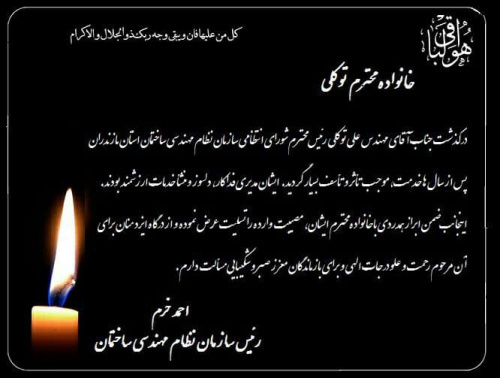 هوالباقی
کل من علیها فان و یبقی وجه ربک ذوالجلال والاکرام
خانواده محترم توکلی
درگذشت جناب آقای مهندس علی توکلی رئیس محترم شورای انتظامی سازمان نظام مهندسی ساختمان استان مازندران
پس از سال ها خدمت، موجب تأثر و تأسف بسیار گردید. ایشان مدیری فداکار، دلسوز و منشا خدمات ارزشمند بودند.
اینجانب ضمن ابراز همدردی با خانواده محترم ایشان، مصیبت وارده را تسلیت عرض نموده و از درگاه ایزد منان برای
آن مرحوم رحمت و علو درجات الهی و برای بازماندگان معزز صبر و شکیبایی مسألت دارم.
احمد خرم
رئیس سازمان نظام مهندسی ساختمان